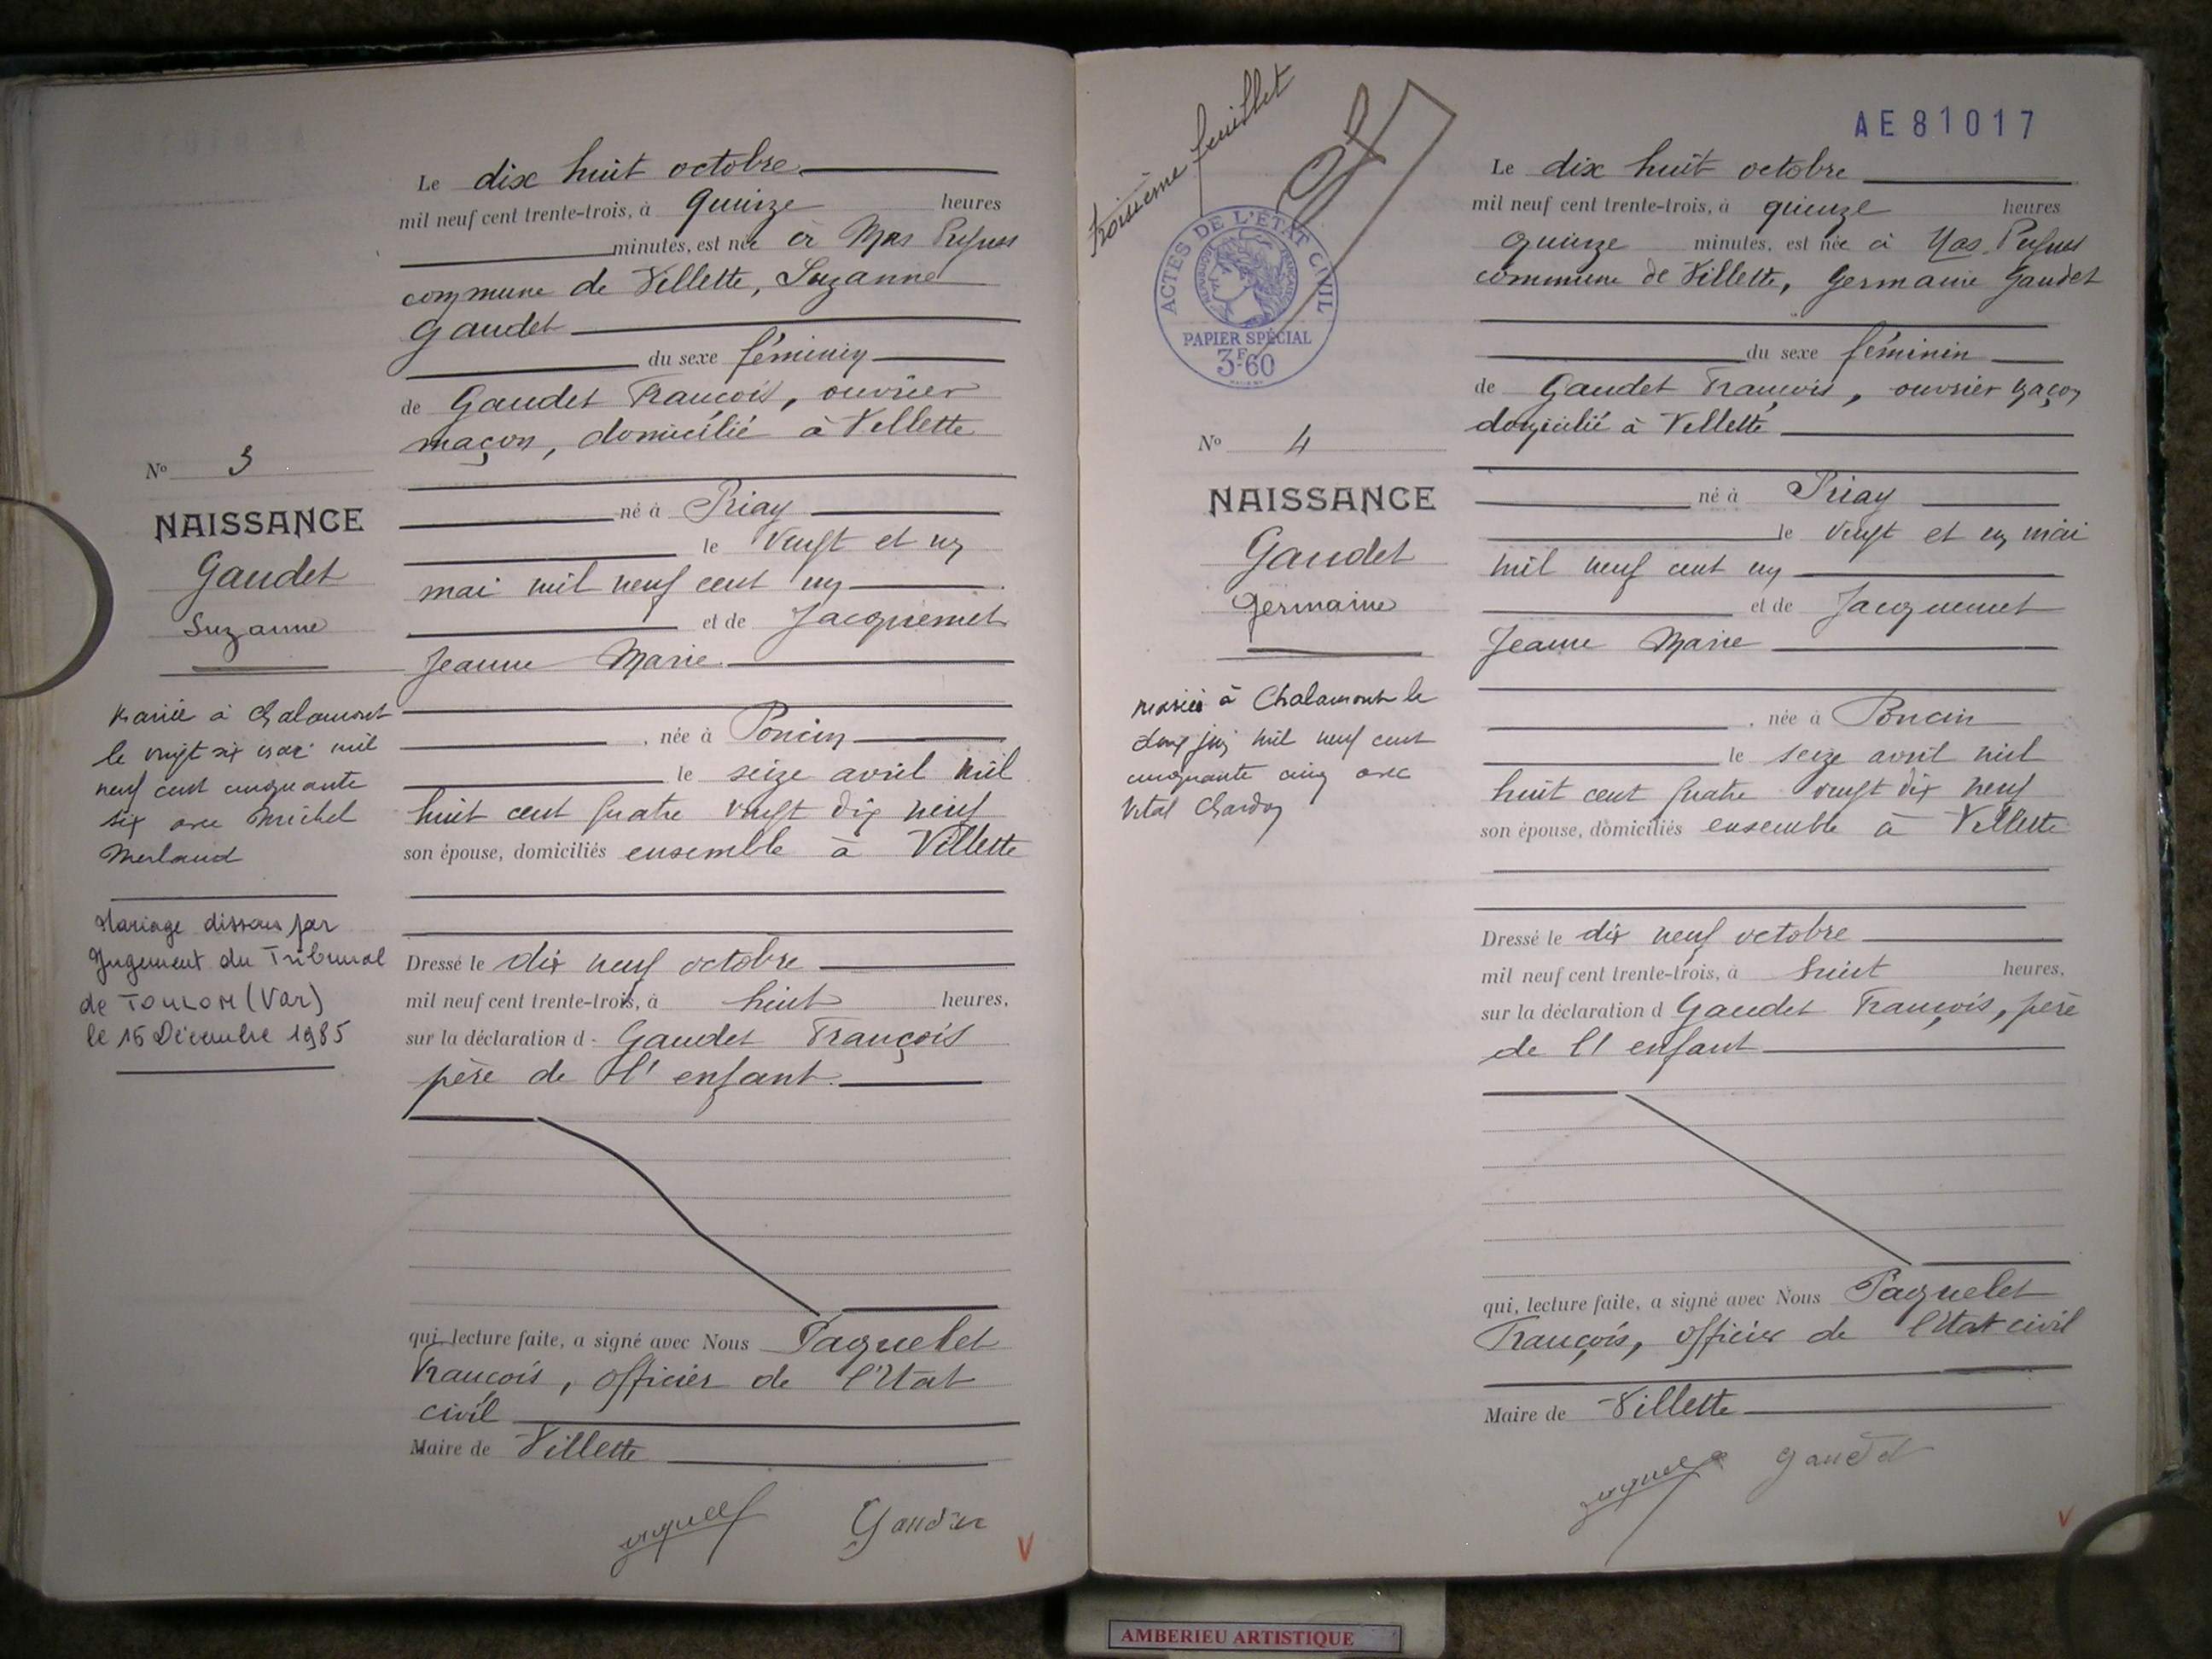 Le dix huit octobre
mil neuf cent trente-trois, à quinze heures
minutes, est née à Mas
commune de Villette, Suzanne
Gaudet
du sexe féminin
de Gaudet François, ouvrier
maçon, domicilié à Villette
né à Priay
le vingt et un
mai mil neuf cent un
et de Jacquemet
Jeanne Marie
, née à Poncin
le seize avril mil
huit cent quatre vingt dix neuf
son épouse, domiciliés ensemble à Villette
Dressé le dix neuf octobre
mil neuf cent trente-trois, à huit heures,
sur la déclaration d Gaudet François
père de l'enfant
qui, lecture faite, a signé avec Nous Paquelet
François, officier de l'Etat
civil
Maire de Villette
No 3
NAISSANCE
Gaudet
Suzanne
Mariée à Chalamont
le vingt six mai mil
neuf cent cinquante
six avec Michel
Merland
Mariage dissous par
Jugement du Tribunal
de TOULON (Var)
le 16 Décembre 1985
Gaudet
V
troisième feuillet
AE81017
ACTES DE L'ÉTAT CIVIL
RÉPUBLIQUE FRANÇAISE
PAPIER SPÉCIAL
3F60
Le dix huit octobre
mil neuf cent trente-trois, à quinze heures
quinze minutes, est née à Mas
commune de Villette, Germaine Gaudet
du sexe féminin
de Gaudet François, ouvrier maçon
domicilié à Villette
né à Priay
le vingt et un mai
mil neuf cent un
et de Jacquemet
Jeanne Marie
, née à Poncin
le seize avril mil
huit cent quatre vingt dix neuf
son épouse, domiciliés ensemble à Villette
Dressé le dix neuf octobre
mil neuf cent trente-trois, à huit heures,
sur la déclaration d Gaudet François, père
de l'enfant
qui, lecture faite, a signé avec Nous Paquelet
François, officier de l'Etat civil
Maire de Villette
No 4
NAISSANCE
Gaudet
Germaine
Mariée à Chalamont le
juin mil neuf cent
cinquante cinq avec
Vital Chardon
Gaudet
V
AMBERIEU ARTISTIQUE